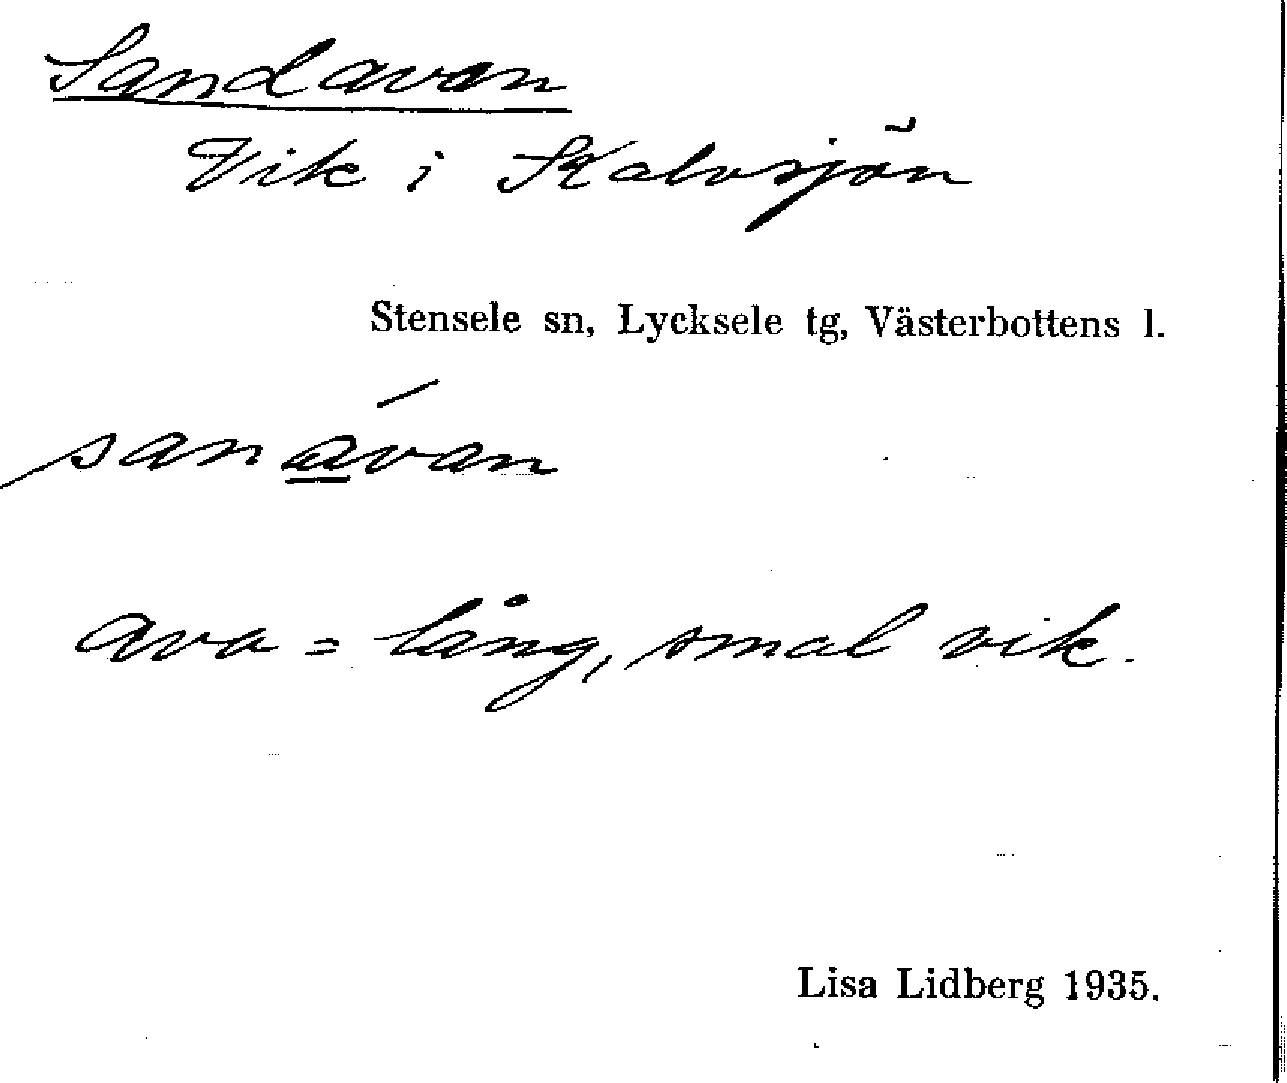 Sandavan
Vik i Kalvsjön
Stensele sn, Lycksele tg, Västerbottens l.
sanávan
ava = lång, smal vik.
Lisa Lidberg 1935.